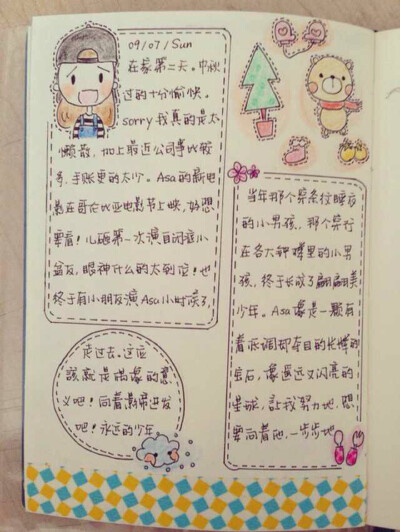 09/07/Sun
在家第二天。中秋
过的十分愉快。
sorry我真的是太
懒散,加上最近公司事比较
多,手账更的太少。Asa的新电
影在哥伦比亚电影节上映,好想
要看!儿砸第一次演自闭症小
盆友,眼神什么的太到位!也
终于有小朋友演Asa小时候了,
走过去。这应
該就是偶像的意
义吧!向着影帝进发
吧!永远的少年
当年那个穿条纹睡衣
的小男孩,那个穿行
在各大钟楼里的小男
孩,终于长成了翩翩美
少年。Asa像是一颗有
着低调却夺目的长尾的
彗石,像遥远又闪亮的
星球,让我努力地,想
要向着他,一步步地